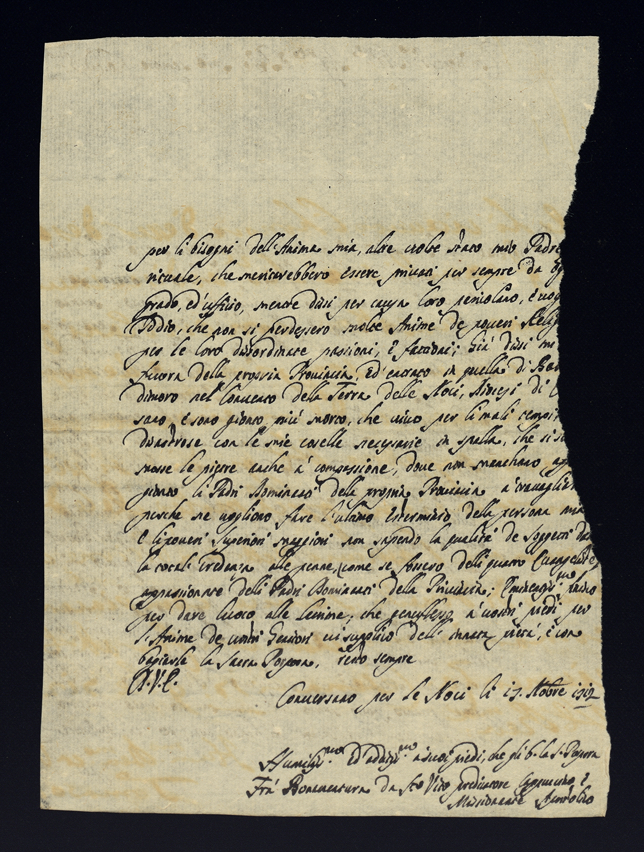 per li bisogni dell'Anima mia, altre volte stato mio Padre
rituale, che meritarebbero essere privati per sempre da
grado, ed'ufficio, mentre dissi per causa loro
Iddio, che non si perdessero molte Anime de poveri Relig
per le loro disordinate passioni, è fazzioni; Già dissi mi
fuora della propria Provincia, Ed entrato in quella di Bar
dimoro nel Convento della Terra delle Noci, Diocesi di
sano, è sono gionto più morto, che vivo per li mali tempi
disastrose con le mie coselle necessarie in spalla, che si
mosse le pietre anche à compassione, dove non mancharo
gionto li Padri Dominanti della propria Provincia à travagliar
perche ne vogliono fare l'ultimo Esterminio della persona mia
È li poveri superiori maggiori non sapendo la qualità de soggetti da
la total credenza alle penne, come se fossero delli quatro Evangelisti
appassionate delli Padri Dominanti della Provincia;
per dare luoco alle lacrime, che à vostri piedi per
l'Anime de vostri Genitori vi supplico dell' innata pietà, è con
bagiarle la Sacra Porpora, resto sempre
D.V.E.
Conversano per le Noci li 17. Xbre
Humiliss.mo Ed à suoi piedi, che gli b. la S. Porpora
Frà Bonaventura da Sto Vito predicatore Capuccino è
Missionante Apostolico